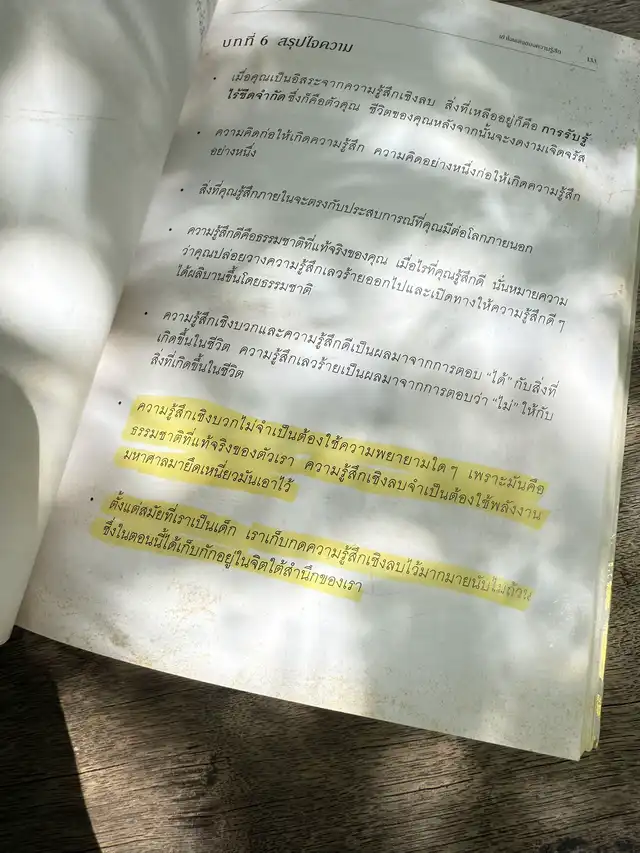 เข้าใจเหตุผลของความรู้สึก
บทที่ 6 สรุปใจความ
• เมื่อคุณเป็นอิสระจากความรู้สึกเชิงลบ สิ่งที่เหลืออยู่ก็คือ การรับรู้
ไร้ขีดจำกัด ซึ่งก็คือตัวคุณ ชีวิตของคุณหลังจากนั้นจะงดงามเจิดจรัส
• ความคิดก่อให้เกิดความรู้สึก ความคิดอย่างหนึ่งก่อให้เกิดความรู้สึก
อย่างหนึ่ง
• สิ่งที่คุณรู้สึกภายในจะตรงกับประสบการณ์ที่คุณมีต่อโลกภายนอก
• ความรู้สึกดีคือธรรมชาติที่แท้จริงของคุณ เมื่อไรที่คุณรู้สึกดี นั่นหมายความ
ว่าคุณปล่อยวางความรู้สึกเลวร้ายออกไปและเปิดทางให้ความรู้สึกดี ๆ
ได้ผลิบานขึ้นโดยธรรมชาติ
• ความรู้สึกเชิงบวกและความรู้สึกดีเป็นผลมาจากการตอบ “ได้” กับสิ่งที่
เกิดขึ้นในชีวิต ความรู้สึกเลวร้ายเป็นผลมาจากการตอบว่า “ไม่” ให้กับ
สิ่งที่เกิดขึ้นในชีวิต
• ความรู้สึกเชิงบวกไม่จำเป็นต้องใช้ความพยายามใด ๆ เพราะมันคือ
ธรรมชาติที่แท้จริงของตัวเรา ความรู้สึกเชิงลบจำเป็นต้องใช้พลังงาน
มหาศาลมายึดเหนี่ยวมันเอาไว้
• ตั้งแต่สมัยที่เราเป็นเด็ก เราเก็บกดความรู้สึกเชิงลบไว้มากมายนับไม่ถ้วน
ซึ่งในตอนนี้ได้เก็บกักอยู่ในจิตใต้สำนึกของเรา